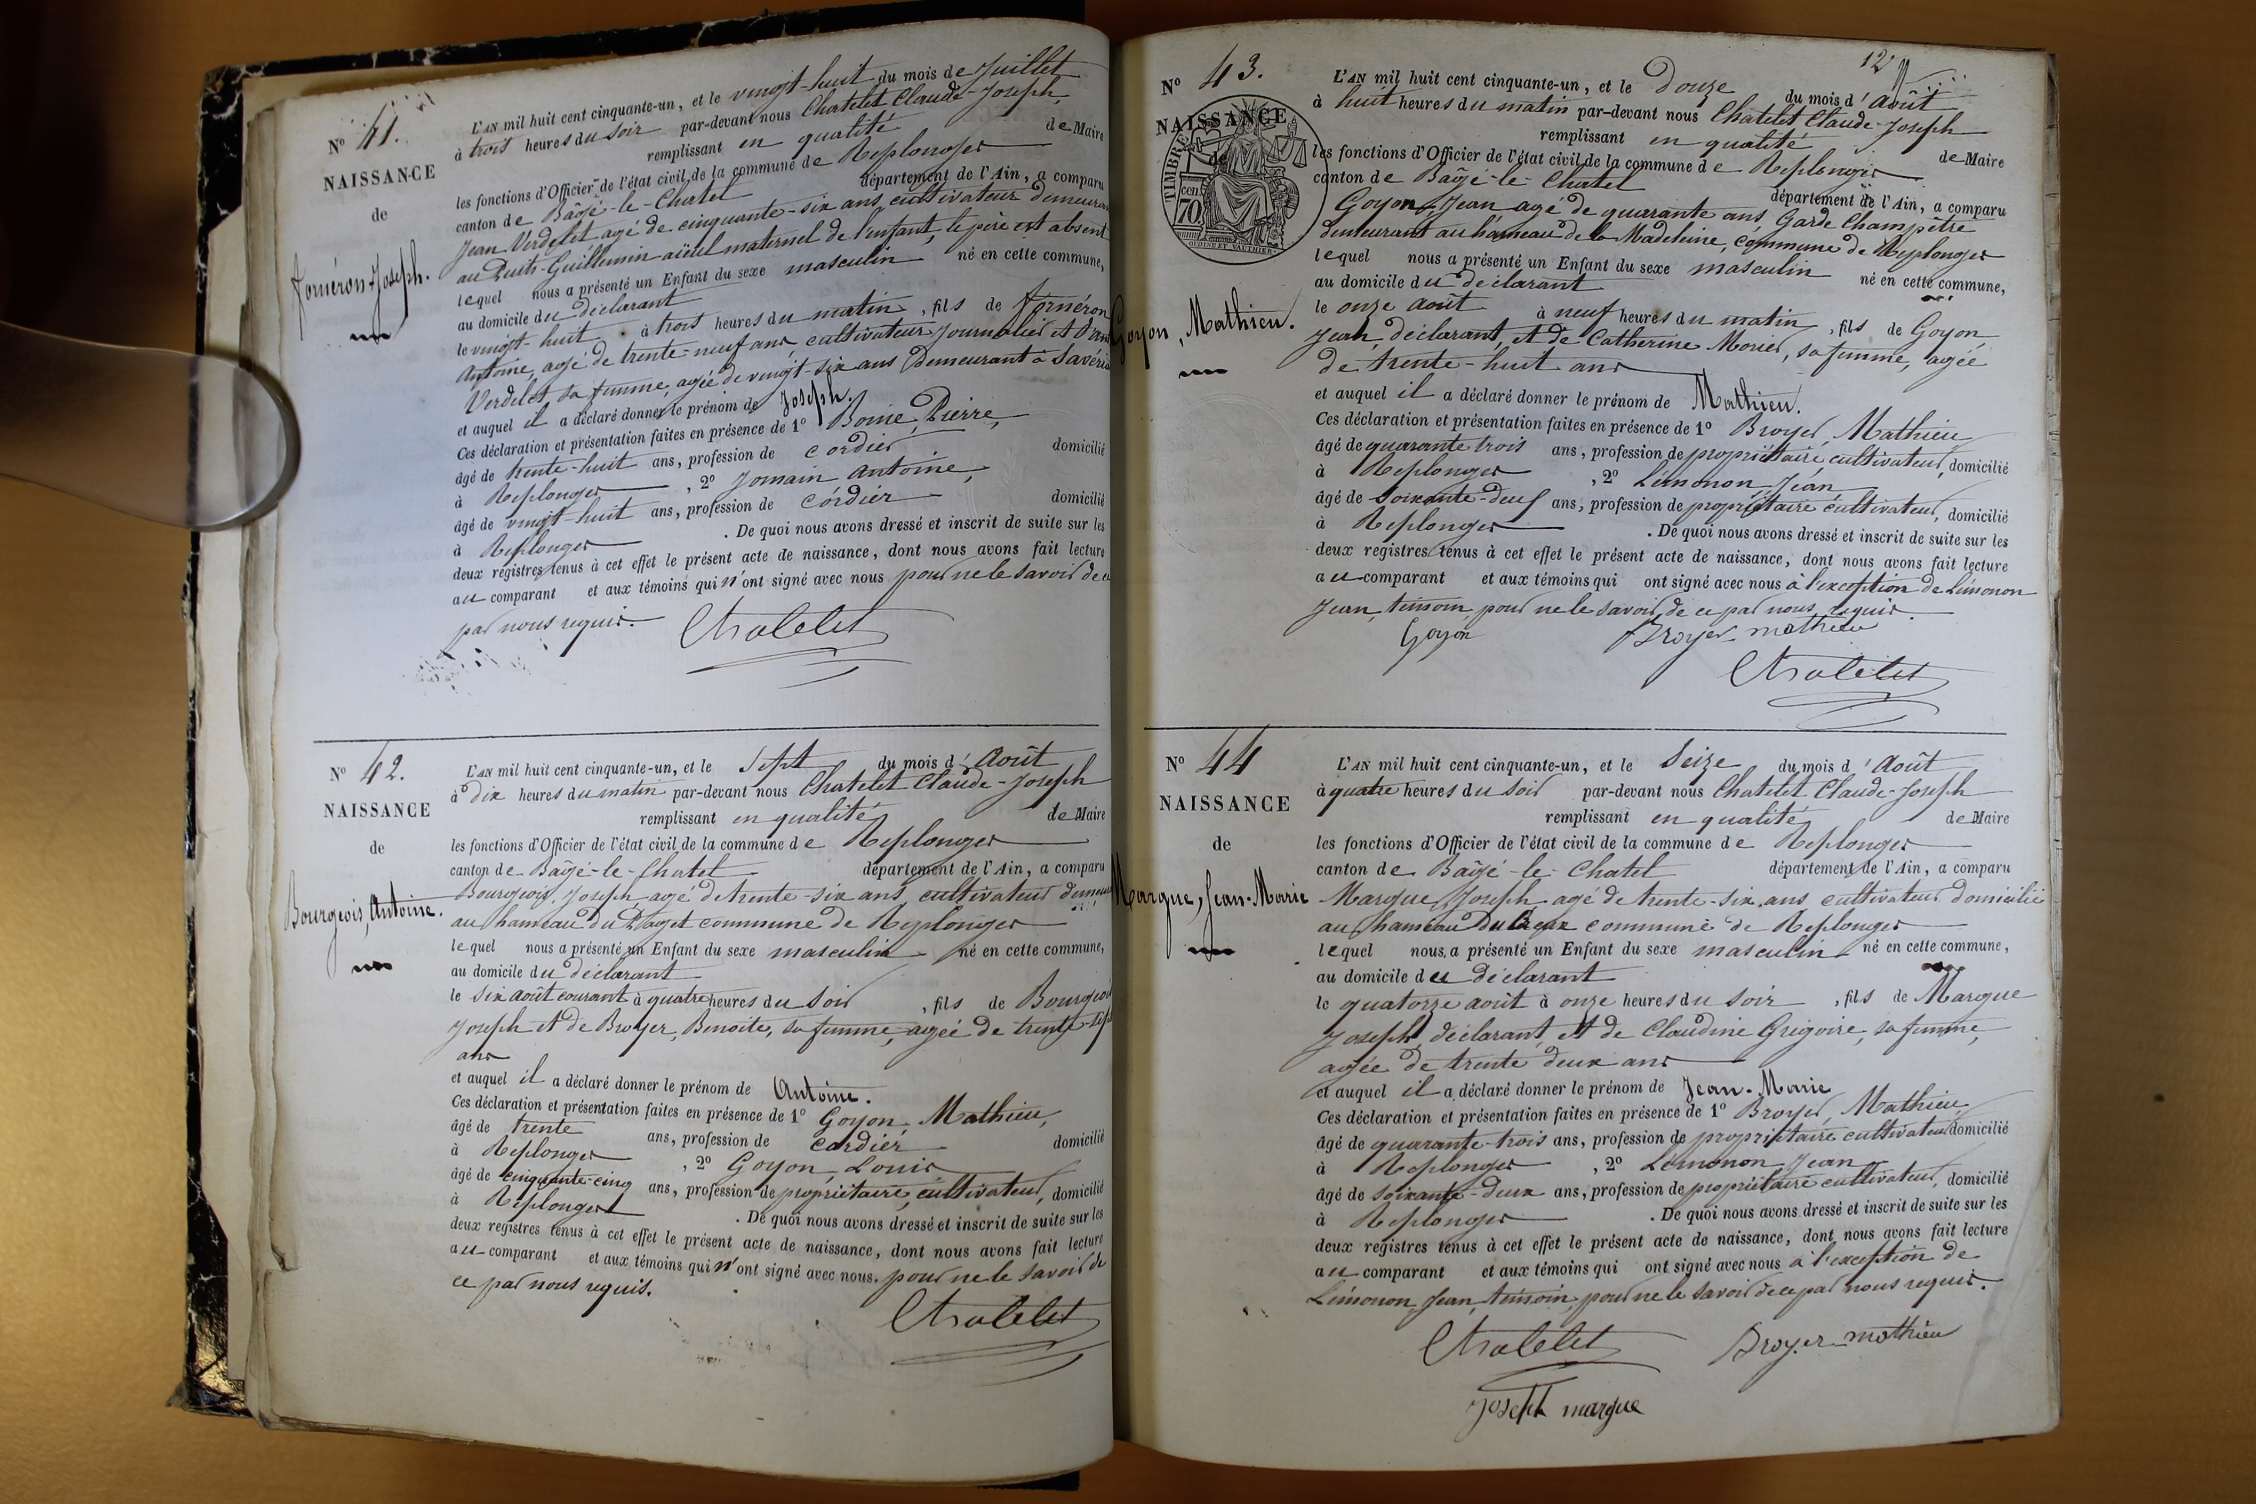 N° 41.
NAISSANCE
de
Fornéron Joseph.
L'AN mil huit cent cinquante-un, et le vingt-huit du mois de Juillet
à trois heures du soir par-devant nous Chatelet Claude-Joseph,
remplissant en qualité de Maire
les fonctions d'Officier de l'état civil de la commune de Replonges
canton de Bâgé-le-Chatel département de l'Ain, a comparu
Jean Verdelet agé de cinquante-six ans, cultivateur demeurant
au Puits-Guillemin aïeul maternel de l'enfant, le père est absent
lequel nous a présenté un Enfant du sexe masculin né en cette commune,
au domicile du déclarant
le vingt-huit à trois heures du matin, fils de Fornéron
Antoine, agé de trente-neuf ans, cultivateur Journalier et
Verdelet, sa femme, agée de vingt-six ans Demeurant à
et auquel il a déclaré donner le prénom de Joseph.
Ces déclaration et présentation faites en présence de 1° Pierre,
âgé de trente-huit ans, profession de cordier domicilié
à Replonges, 2° Jomain Antoine,
âgé de vingt-huit ans, profession de cordier domicilié
à Replonges. De quoi nous avons dressé et inscrit de suite sur les
deux registres tenus à cet effet le présent acte de naissance, dont nous avons fait lecture
au comparant et aux témoins qui n'ont signé avec nous pour ne le savoir de ce
par nous requis.
Chatelet
N° 42.
NAISSANCE
de
Bourgeois, Antoine.
L'AN mil huit cent cinquante-un, et le sept du mois d'Août
à dix heures du matin par-devant nous Chatelet Claude-Joseph
remplissant en qualité de Maire
les fonctions d'Officier de l'état civil de la commune de Replonges
canton de Bâgé-le-Chatel département de l'Ain, a comparu
Bourgeois, Joseph, agé de trente-six ans, cultivateur
au hameau du Paget commune de Replonges
lequel nous a présenté un Enfant du sexe masculin né en cette commune,
au domicile du déclarant
le six août courant à quatre heures du soir, fils de Bourgeois
Joseph et de Broyer, Benoite, sa femme, agée de trente-sept
ans
et auquel il a déclaré donner le prénom de Antoine.
Ces déclaration et présentation faites en présence de 1° Goyon, Mathieu,
âgé de trente ans, profession de cordier domicilié
à Replonges, 2° Goyon, Louis
âgé de cinquante-cinq ans, profession de propriétaire, cultivateur, domicilié
à Replonges. De quoi nous avons dressé et inscrit de suite sur les
deux registres tenus à cet effet le présent acte de naissance, dont nous avons fait lecture
au comparant et aux témoins qui n'ont signé avec nous. pour ne le savoir de
ce par nous requis.
Chatelet
12
N° 43.
NAISSANCE
de
TIMBRE
CEN. 70
Goyon, Mathieu.
L'AN mil huit cent cinquante-un, et le Douze du mois d'Août
à huit heures du matin par-devant nous Chatelet Claude-Joseph
remplissant en qualité de Maire
les fonctions d'Officier de l'état civil de la commune de Replonges
canton de Bâgé-le-Chatel département de l'Ain, a comparu
Goyon, Jean agé de quarante ans, Garde Champêtre
demeurant au hameau de la Madeleine, commune de Replonges
lequel nous a présenté un Enfant du sexe masculin né en cette commune,
au domicile du déclarant
le onze août à neuf heures du matin, fils de Goyon
Jean, déclarant, et de Catherine Morier, sa femme, agée
de trente-huit ans
et auquel il a déclaré donner le prénom de Mathieu.
Ces déclaration et présentation faites en présence de 1° Broyer, Mathieu
âgé de quarante trois ans, profession de propriétaire, cultivateur, domicilié
à Replonges, 2° Lémonon Jean
âgé de soixante-deux ans, profession de propriétaire cultivateur, domicilié
à Replonges. De quoi nous avons dressé et inscrit de suite sur les
deux registres tenus à cet effet le présent acte de naissance, dont nous avons fait lecture
au comparant et aux témoins qui ont signé avec nous à l'exception de Lémonon
Jean, témoin, pour ne le savoir, de ce par nous requis.
Goyon Broyer mathieu
Chatelet
N° 44
NAISSANCE
de
Margue, Jean-Marie
L'AN mil huit cent cinquante-un, et le Seize du mois d'Août
à quatre heures du soir par-devant nous Chatelet Claude-Joseph
remplissant en qualité de Maire
les fonctions d'Officier de l'état civil de la commune de Replonges
canton de Bâgé-le-Chatel département de l'Ain, a comparu
Margue, Joseph agé de trente-six ans cultivateur domicilié
au hameau Du Creux commune de Replonges
lequel nous a présenté un Enfant du sexe masculin né en cette commune,
au domicile du déclarant
le quatorze août à onze heures du soir, fils de Margue
Joseph, déclarant, et de Claudine Grégoire, sa femme,
agée de trente deux ans
et auquel il a déclaré donner le prénom de Jean-Marie
Ces déclaration et présentation faites en présence de 1° Broyer, Mathieu
âgé de quarante-trois ans, profession de propriétaire cultivateur domicilié
à Replonges, 2° Lémonon Jean
âgé de soixante-deux ans, profession de propriétaire cultivateur, domicilié
à Replonges. De quoi nous avons dressé et inscrit de suite sur les
deux registres tenus à cet effet le présent acte de naissance, dont nous avons fait lecture
au comparant et aux témoins qui ont signé avec nous à l'exception de
Lémonon Jean, témoin, pour ne le savoir de ce par nous requis.
Chatelet Broyer mathieu
Joseph margue